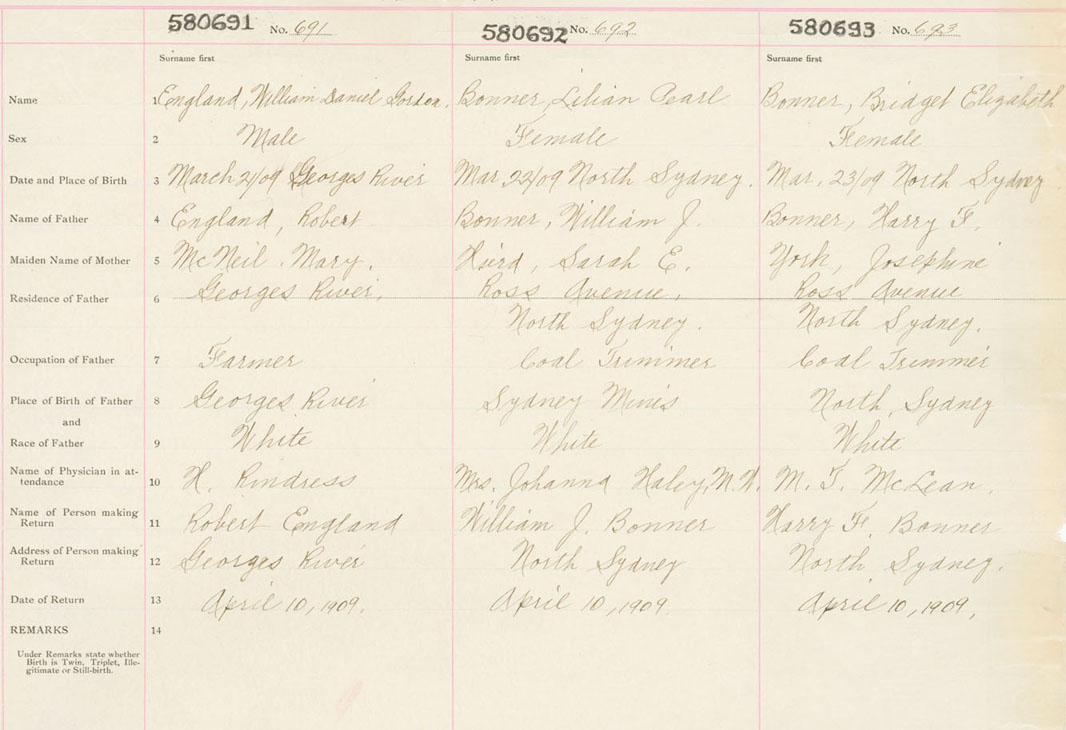 580691 No. 691 580692 No. 692 580693 No. 693
Surname first Surname first Surname first
Name 1 England, William Daniel Gordon. Bonner, Lilian Pearl Bonner, Bridget Elizabeth
Sex 2 Male Female Female
Date and Place of Birth 3 March 2/09 Georges River Mar 22/09 North Sydney. Mar. 23/09 North Sydney
Name of Father 4 England, Robert Bonner, William J. Bonner, Harry F.
Maiden Name of Mother 5 McNeil. Mary. Sarah E. York, Josephine
Residence of Father 6 Georges River. Ross Avenue, Ross Avenue
North Sydney. North Sydney.
Occupation of Father 7 Farmer Coal Trimmer Coal Trimmer
Place of Birth of Father 8 Georges River Sydney Mines North, Sydney
and
Race of Father 9 White White White
Name of Physician in at-
tendance 10 H. Kindress Mrs. Johanna Haley, M.W. M. T. McLean.
Name of Person making
Return 11 Robert England William J. Bonner Harry F. Bonner
Address of Person making
Return 12 Georges River North Sydney North Sydney.
Date of Return 13 April 10, 1909. April 10, 1909 April 10, 1909.
REMARKS 14
Under Remarks state whether
Birth is Twin, Triplet, Ille-
gitimate or Still-birth.